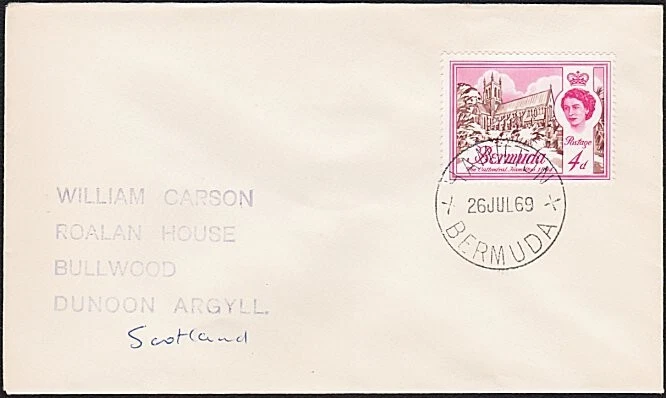 Postage
Bermuda
4d
The Cathedral,
HAMILTON
26 JUL 69
BERMUDA
WILLIAM CARSON
ROALAN HOUSE
BULLWOOD
DUNOON ARGYLL.
Scotland